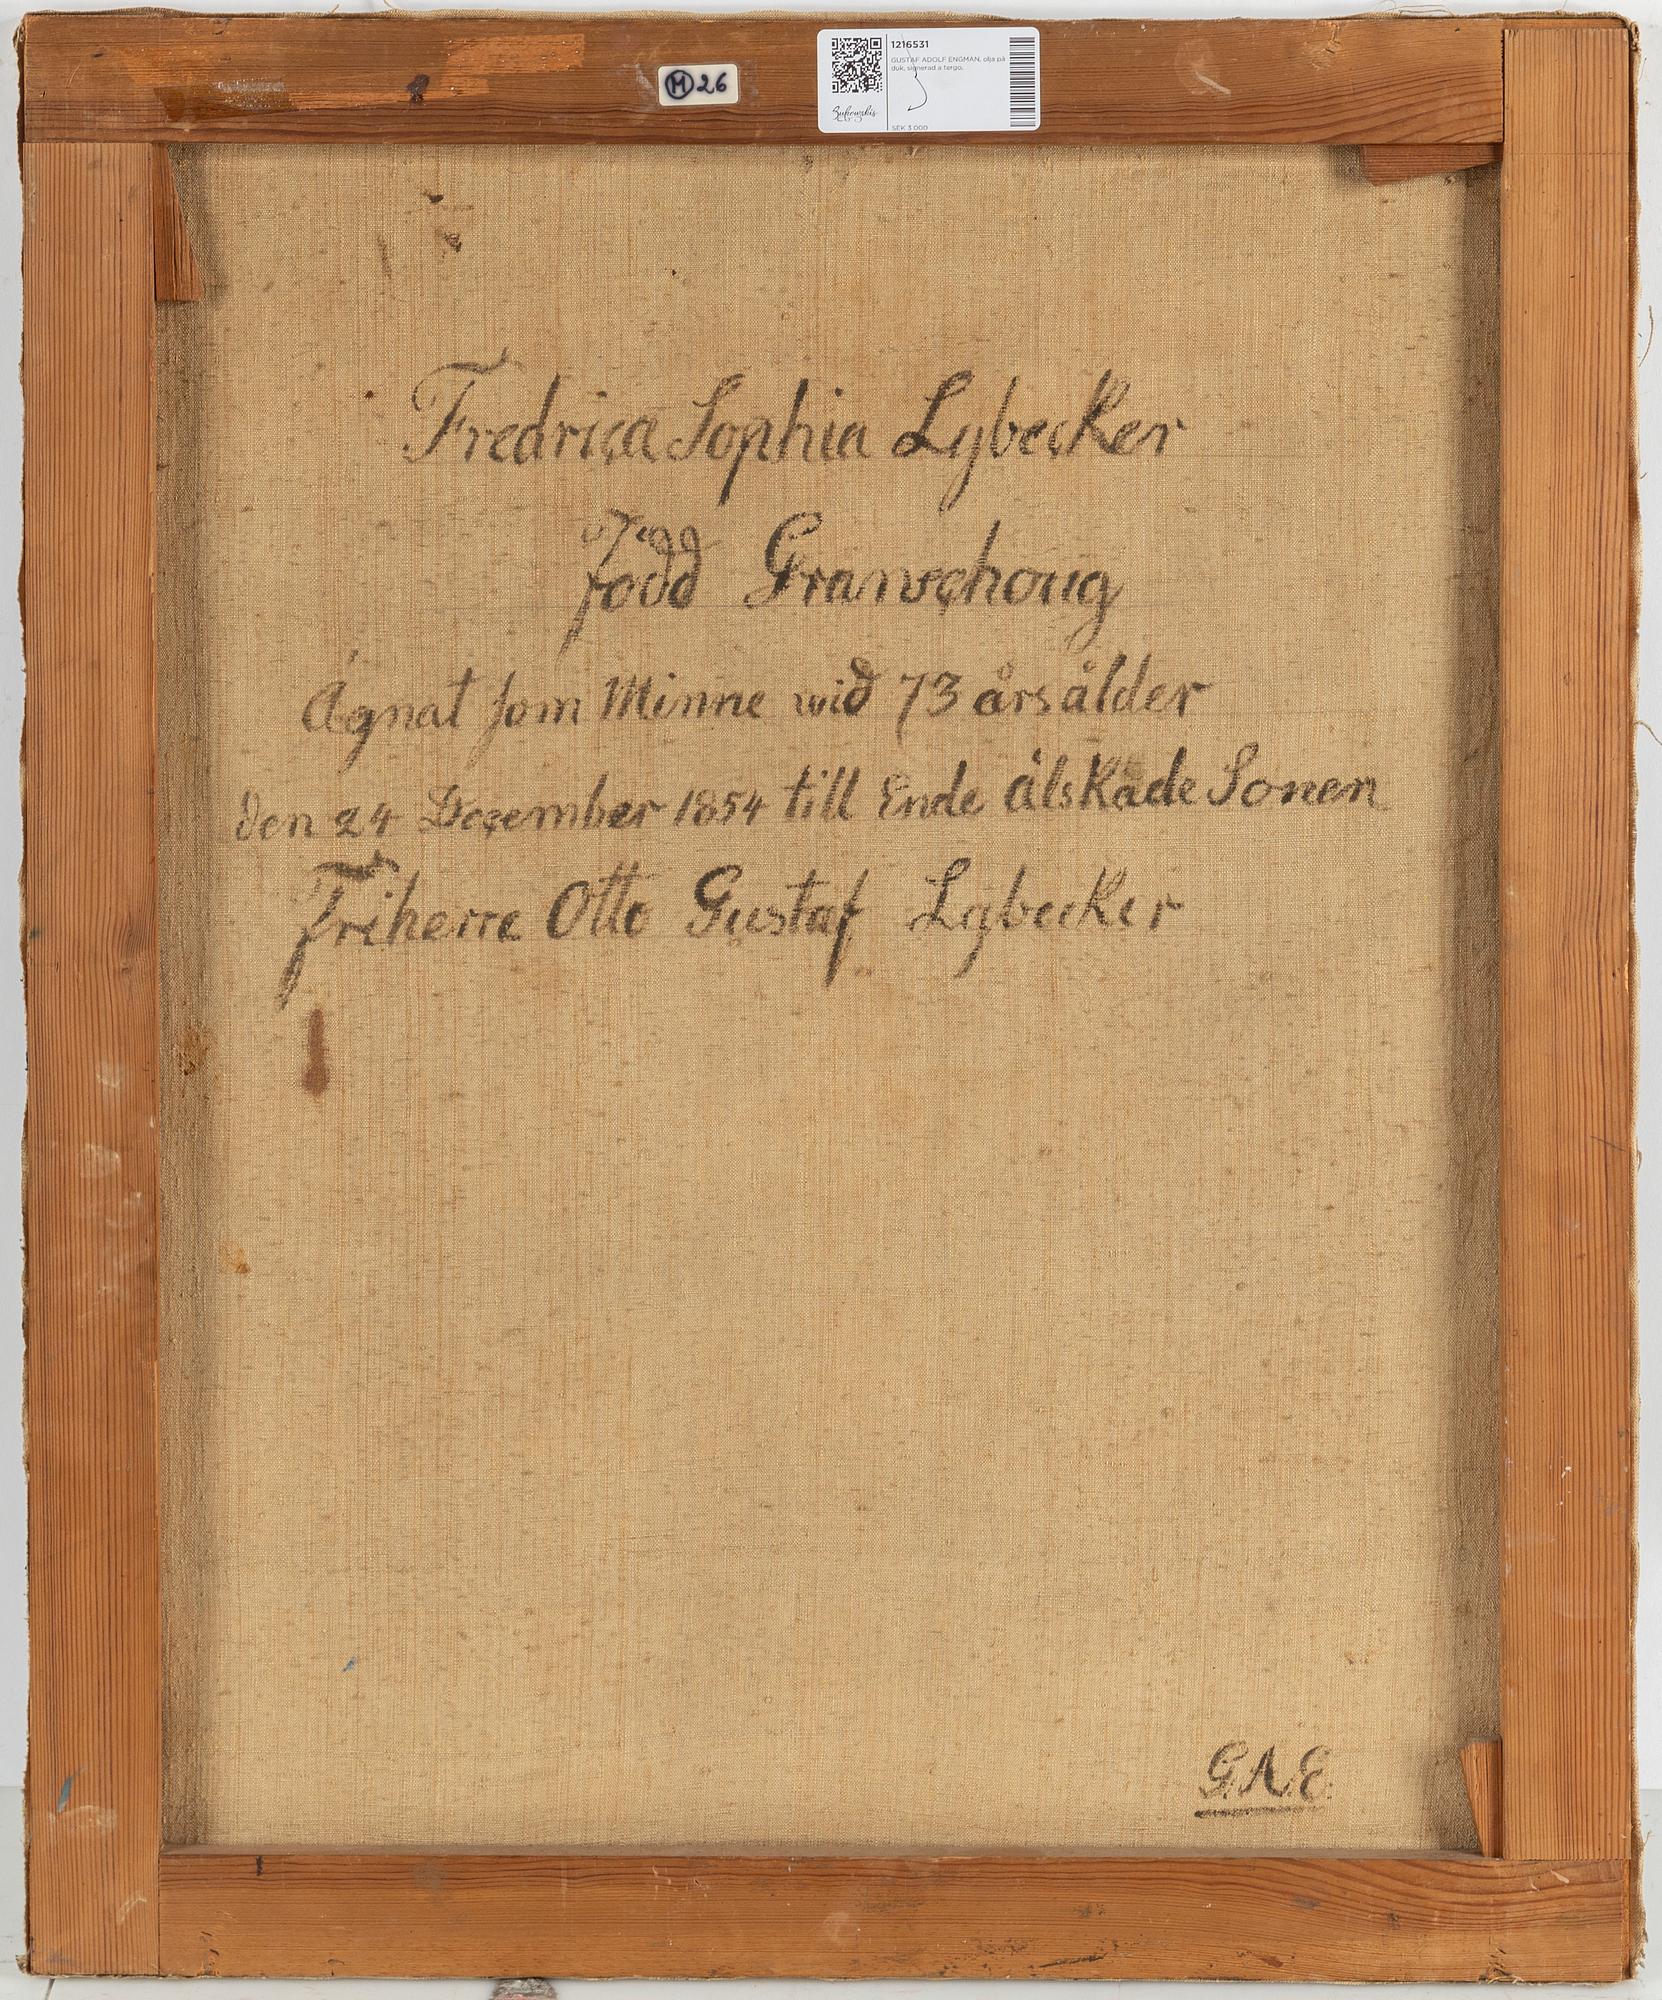 M 26
1216531
GUSTAF ADOLF ENGMAN, olja på
duk, signerad a tergo.
Bukowskis
SEK 3 000
Fredrica Sophia Lybecker
född Granschoug
Ägnat som Minne wid 73 års ålder
den 24 December 1854 till Ende älskade Sonen
Friherre Otto Gustaf Lybecker
G.A.E.